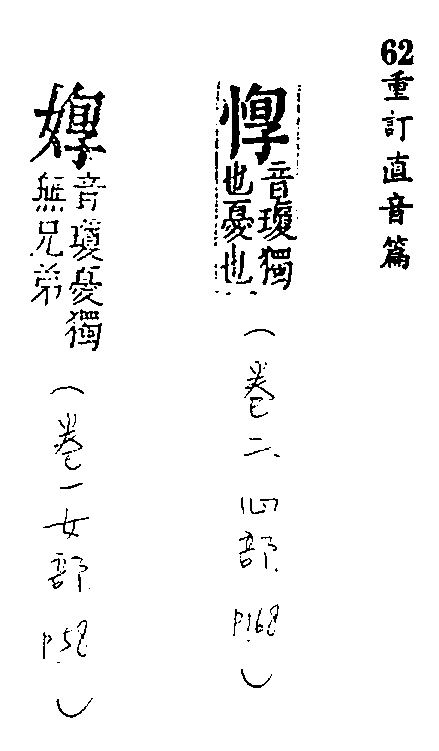 62重訂直音篇
惸
音瓊獨
也憂也
(卷二、心部 P168)
音瓊憂獨
無兄弟
(卷一女部 P58)